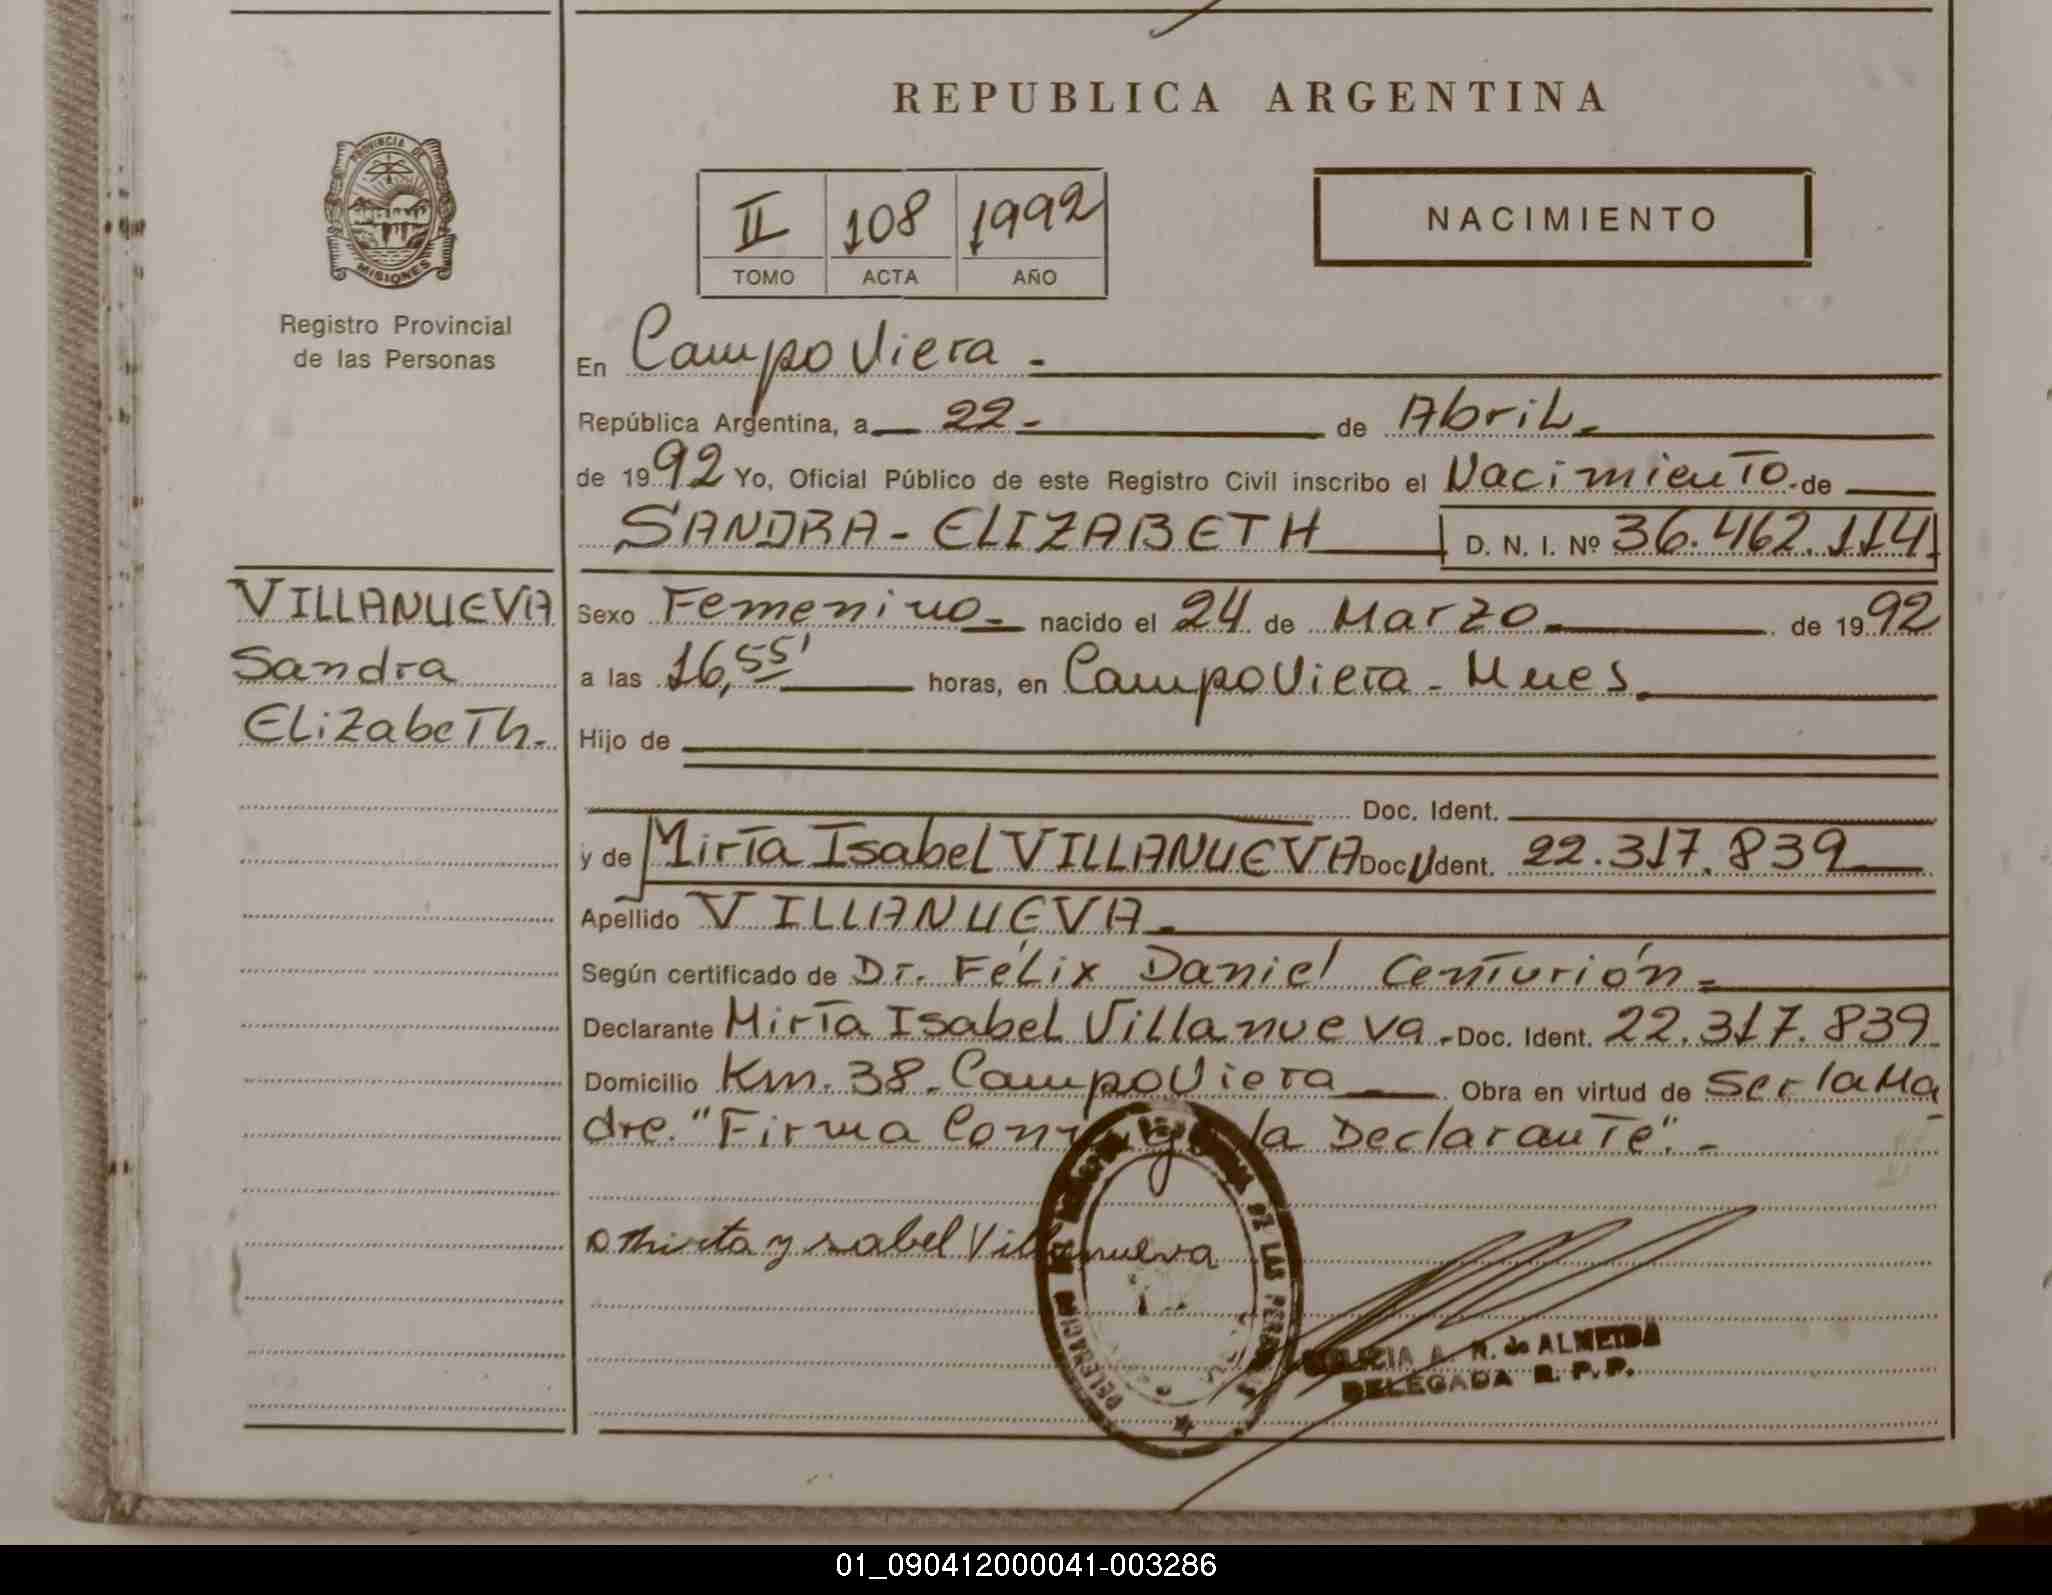 REPUBLICA ARGENTINA
PROVINCIA DE
MISIONES
Registro Provincial
de las Personas
II 108 1992
TOMO ACTA AÑO
NACIMIENTO
En Campo Viera -
República Argentina, a 22- de Abril.
de 1992 Yo, Oficial Público de este Registro Civil inscribo el Nacimiento. de
SANDRA - ELIZABETH D. N. I. Nº 36.462.114
VILLANUEVA
Sandra
Elizabeth.
Sexo Femenino nacido el 24 de Marzo de 1992
a las 16,55' horas, en Campo Viera - Mnes.
Hijo de
Doc. Ident.
y de Mirta Isabel VILLANUEVA Doc. Ident. 22.317.839
Apellido VILLANUEVA.
Según certificado de Dr. Félix Daniel Centurión
Declarante Mirta Isabel Villanueva. Doc. Ident. 22.317.839
Domicilio Km. 38. Campo Viera Obra en virtud de Ser la Ma
dre. "Firma Conmigo la Declarante". -
Mirta ysabel Villanueva
DE LAS PERSONAS
A. R. de ALMEIDA
DELEGADA R. P. P.
01_090412000041-003286